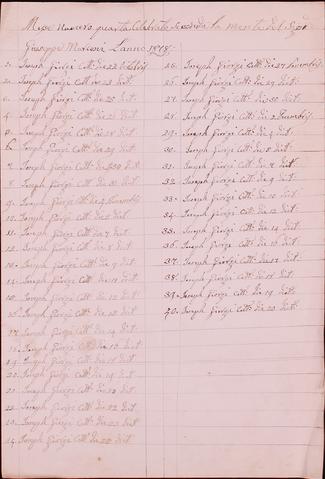 Messe Numero quaranta Celebrate secondo la mente del Sigr
Giuseppe Mosconi L'anno 1878:
1. Joseph Giorgi Cottes die 22 Octobris
2. Joseph Giorgi Cott: die 23 dict.
3. Joseph Giorgi Cott: die dict.
4. Joseph Giorgi Cott: die 25 dict.
5. Joseph Giorgi Cott: die dict.
6. Joseph Giorgi Cott: die 29 dict.
7. Joseph Giorgi Cott: die 30 dict.
8. Joseph Giorgi Cott: die dict.
9. Joseph Giorgi Cott: die Novembris
10. Joseph Giorgi Cott: die dict.
11. Joseph Giorgi Cott: die 7 dict.
12. Joseph Giorgi Cott: die 8 dict.
13. Joseph Giorgi Cott: die 9 dict.
14. Joseph Giorgi Cott: die dict.
15. Joseph Giorgi Cott: die 12 dict.
16. Joseph Giorgi Cott: die dict.
17. Joseph Giorgi Cott: die 14 dict.
18. Joseph Giorgi Cott: die 15 dict.
19. Joseph Giorgi Cott: die dict.
20. Joseph Giorgi Cott: die 19 dict.
21. Joseph Giorgi Cott: die dict.
22. Joseph Giorgi Cott: die 22 dict.
23. Joseph Giorgi Cott: die 23 dict.
24. Joseph Giorgi Cott: die dict.
25. Joseph Giorgi Cott: die 27 Novembris
26. Joseph Giorgi Cott: die 29 dict.
27. Joseph Giorgi Cott: die 30 dict.
28. Joseph Giorgi Cott: die 2 Decembris
29. Joseph Giorgi Cott: die 4 dict.
30. Joseph Giorgi Cott: die 5 dict.
31. Joseph Giorgi Cott: die 7 dict.
32. Joseph Giorgi Cott: die 9 dict.
33. Joseph Giorgi Cott: die 10 dict.
34. Joseph Giorgi Cott: die 12 dict.
35. Joseph Giorgi Cott: die 14 dict.
36. Joseph Giorgi Cott: die 16 dict.
37. Joseph Giorgi Cott: die 17 dict.
38. Joseph Giorgi Cott: die 18 dict.
39. Joseph Giorgi Cott: die 19 dict.
40. Joseph Giorgi Cott: die 20 dict.